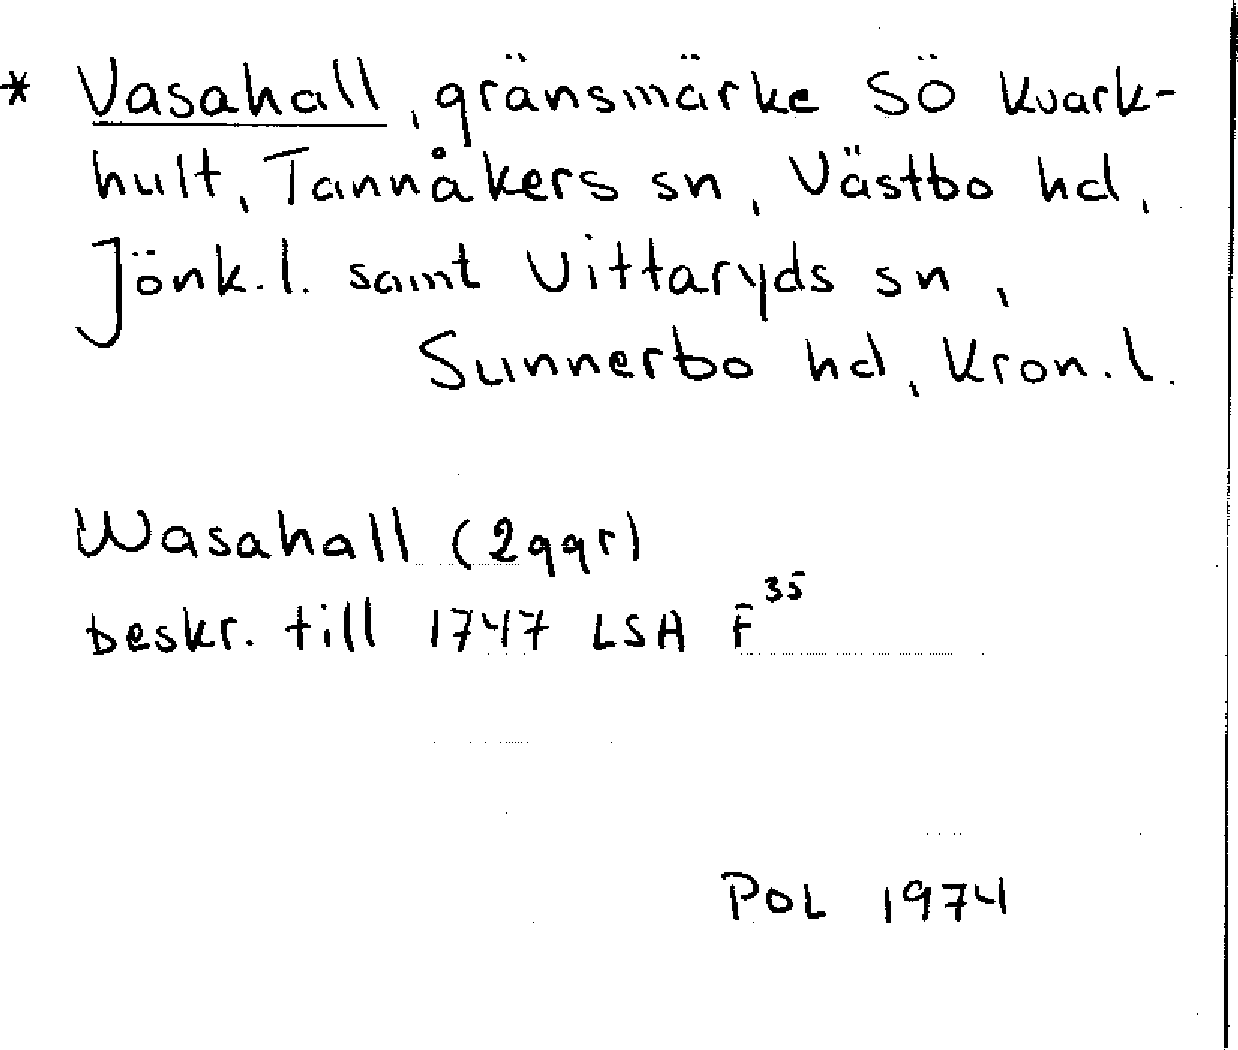 * Vasahall, gränsmärke SÖ Kvark-
hult, Tannåkers sn, Västbo hd,
Jönk.l. samt Vittaryds sn,
Sunnerbo hd, Kron.l.
Wasahall (2ggr)
beskr. till 1747 LSA F³⁵
POL 1974